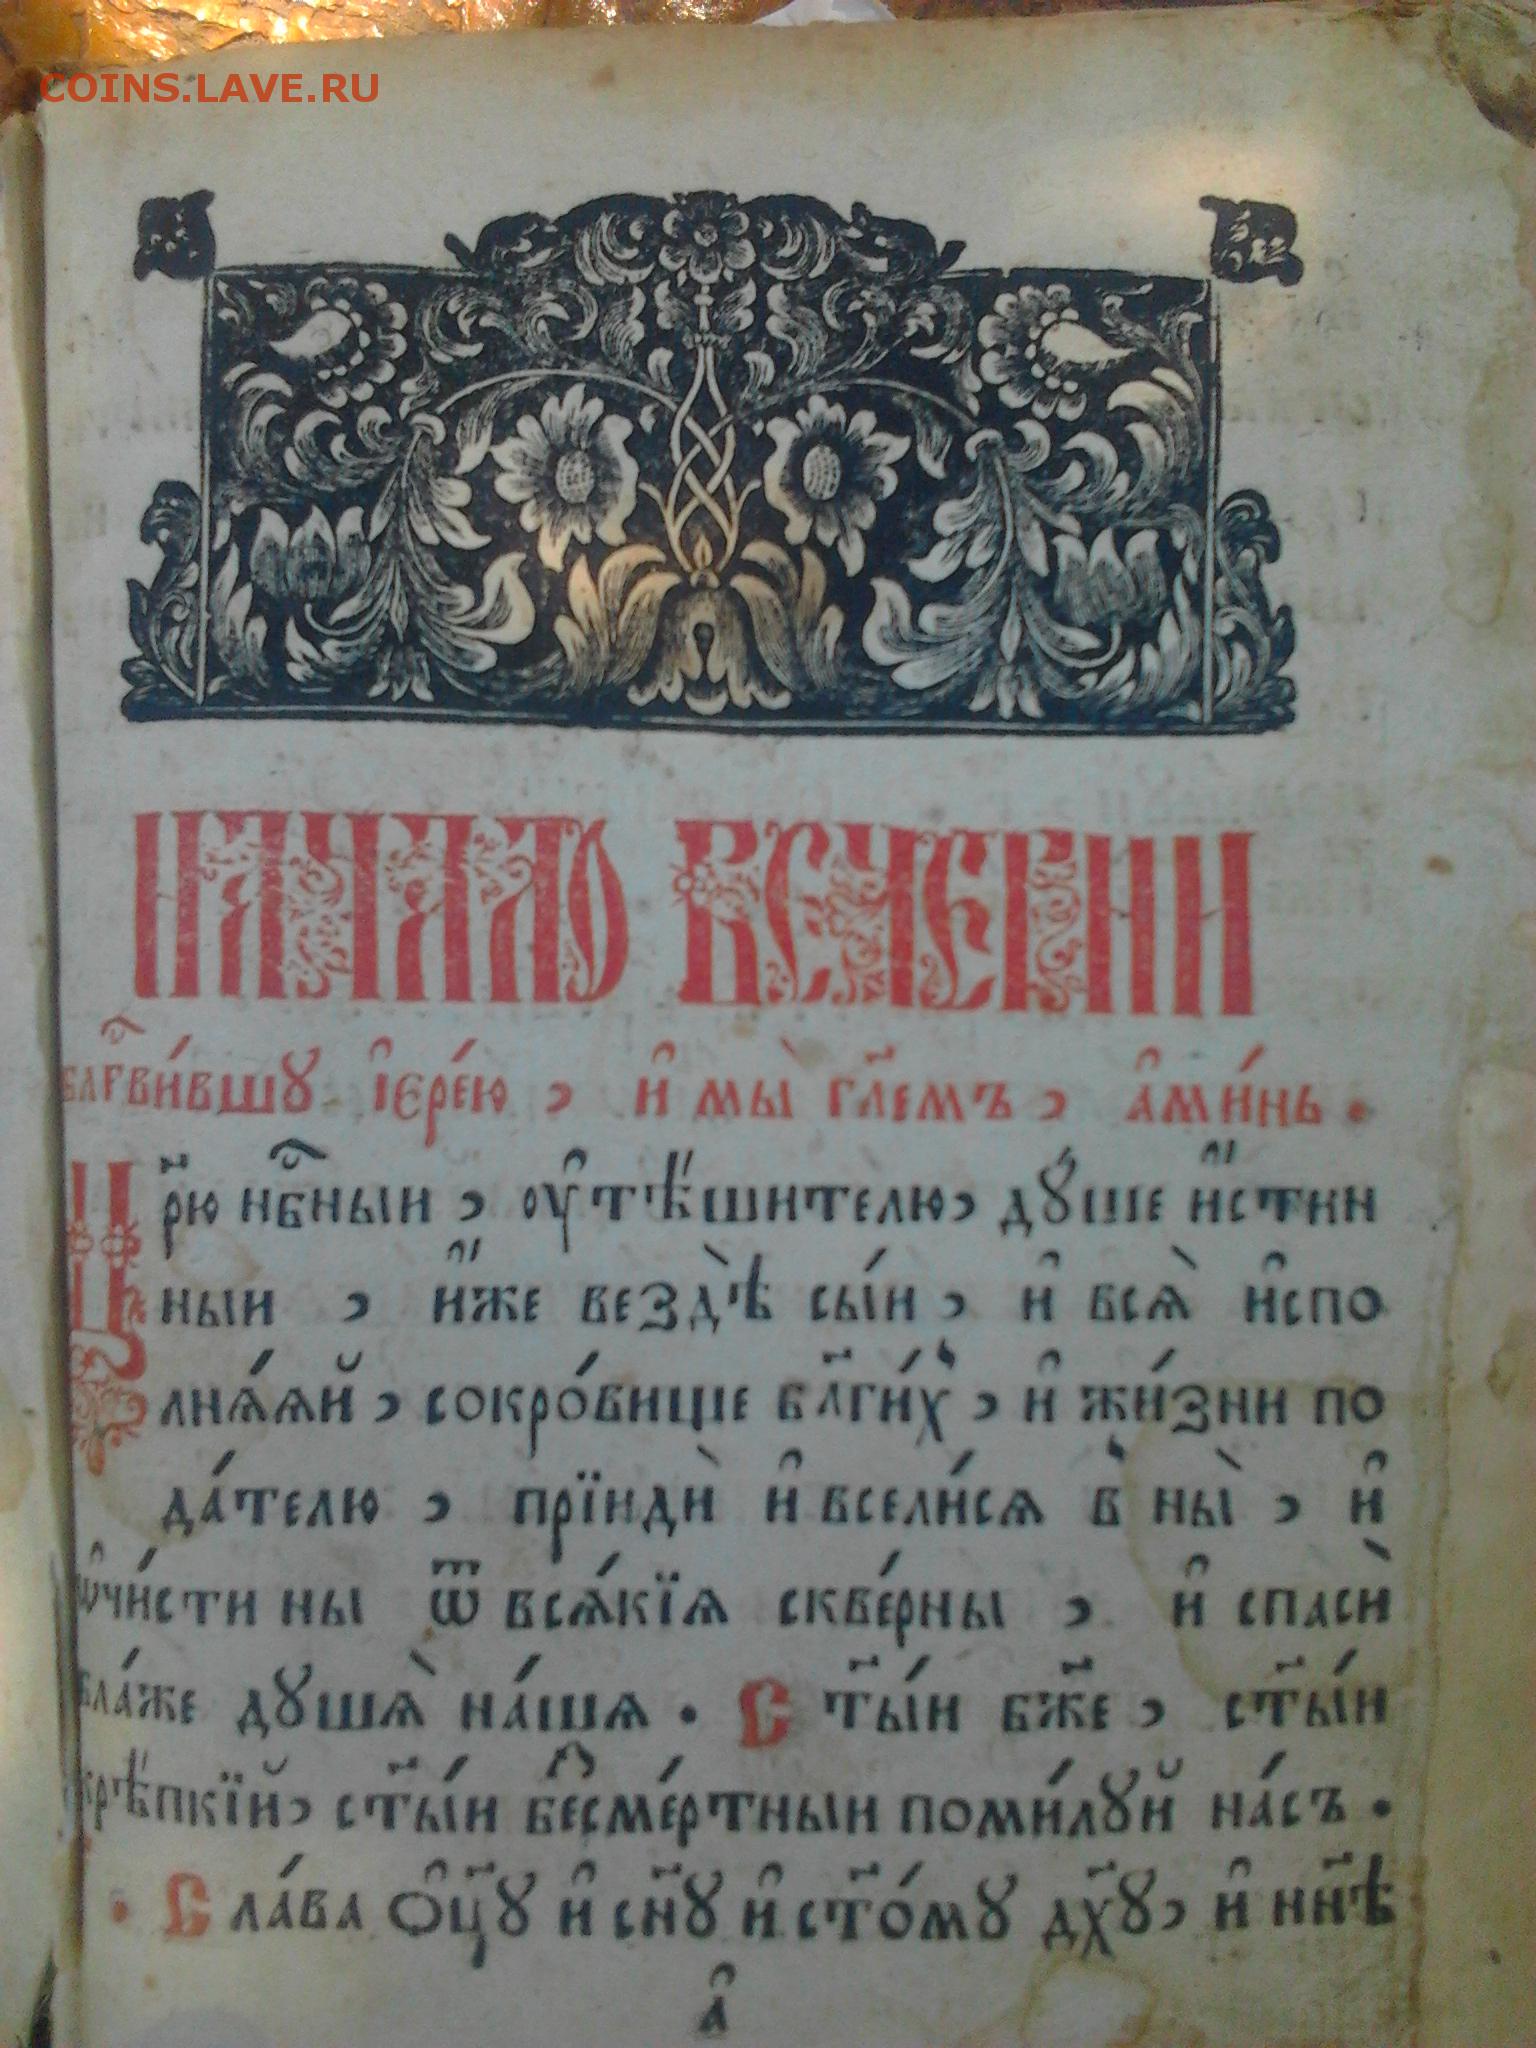 COINS.LAVE.RU
НАЧАЛО ВЕЧЕРНИ
блгⷭ҇ви́вшꙋ і҆ере́ю , и҆ мы̀ гл҃емъ , а҆ми́нь .
Цр҃ю нбⷭ҇ныи , оу҆тѣ́шителю , дꙋ́ше и҆́стин
ныи , и҆́же вездѣ̀ сы́и , и҆ всѧ̀ и҆спо
лнѧ́ѧй , сокро́вище бл҃ги́хъ , и҆ жи́зни по
да́телю , прїидѝ и҆ всели́сѧ в̾ ны̀ , и҆
ѡ҆чи́сти ны ѿ всѧ́кїѧ скве́рны , и҆ спасѝ
бла́же дꙋшѧ̀ на́шѧ . Ст҃ы́и бж҃е , ст҃ы́и
крѣ́пкїй , ст҃ы́и бесме́ртныи поми́лꙋй на́съ .
. Сла́ва ѻ҆ц҃ꙋ и҆ сн҃ꙋ и҆ ст҃о́мꙋ дх҃ꙋ , и҆ нн҃ѣ
а҆